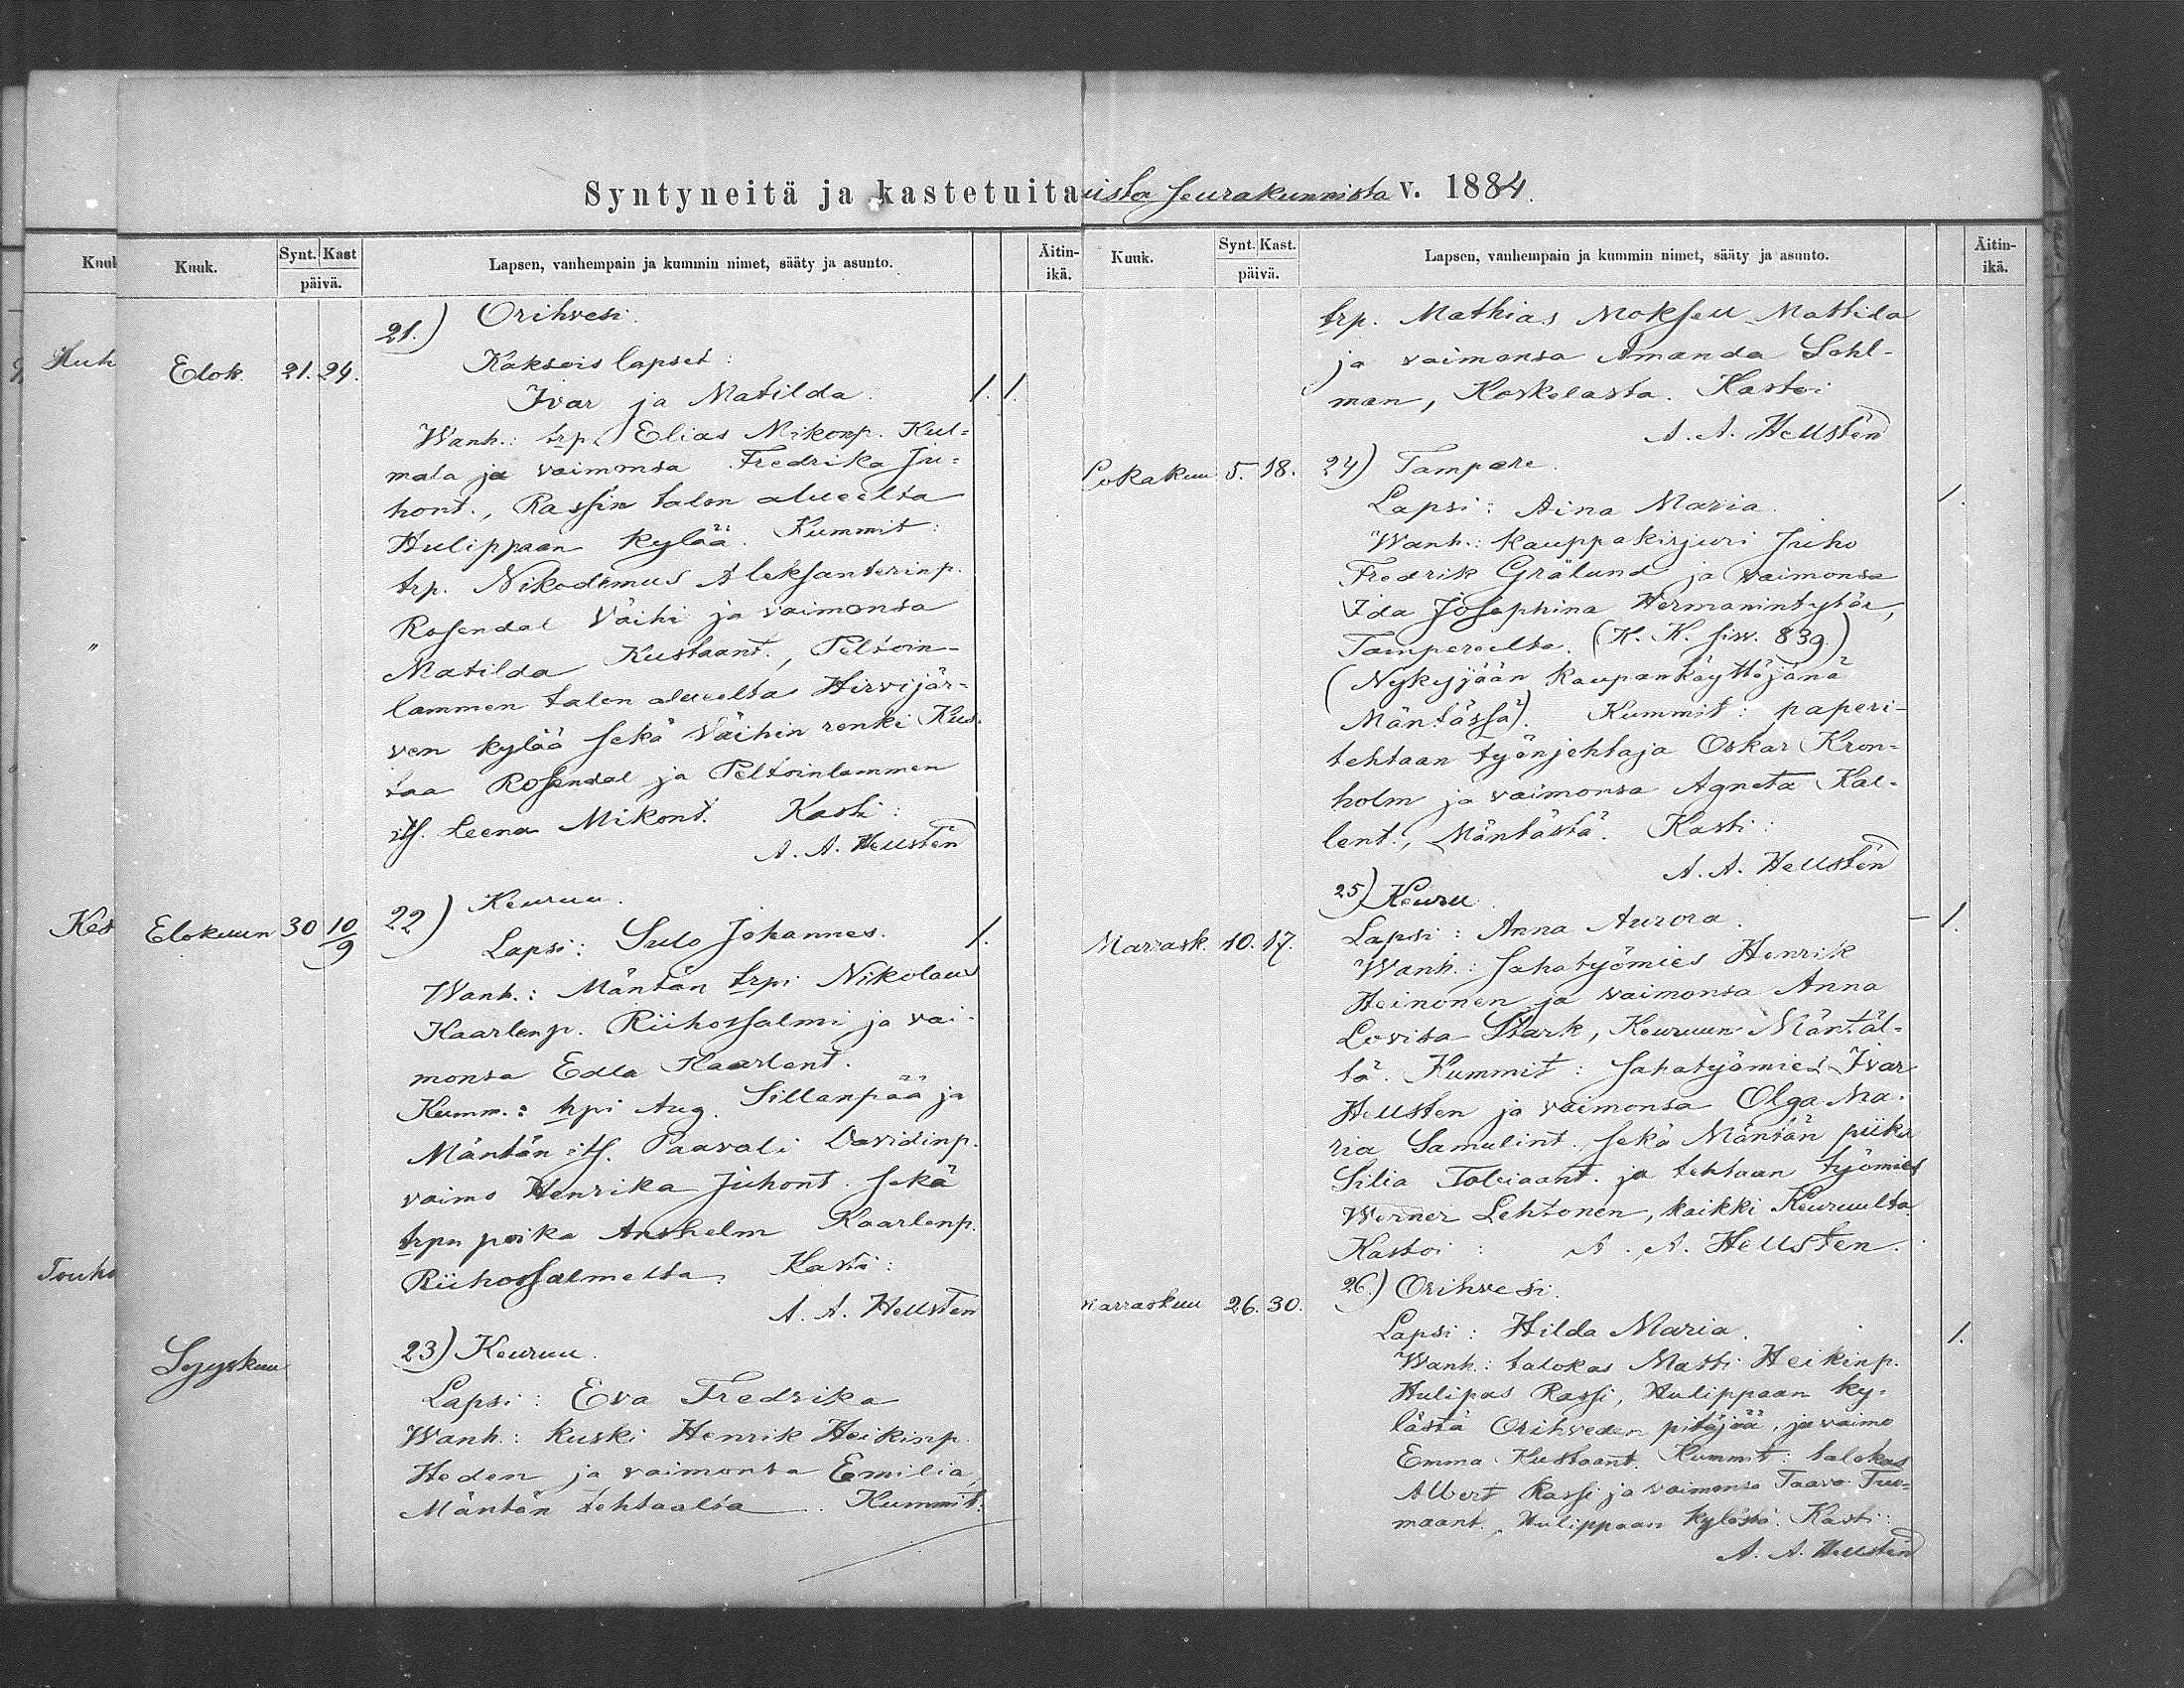 Syntyneitä ja kastetuita uista seurakunnista v. 1884.
Kuuk.
Synt. Kast
päivä.
Lapsen, vanhempain ja kummin nimet, sääty ja asunto.
Äitin-
ikä.
21.) Orihvesi.
Kaksois lapset:
Elok. 21. 24.
Ivar ja Matilda. 1. 1.
Wanh.: trp. Elias Mikonp. Kul=
mala ja vaimonsa Fredrika Ju=
hont., Rassin talon alueelta
Hulippaan kylää. Kummit:
trp. Nikodemus Aleksanterinp.
Rosendal Väihi ja vaimonsa
Matilda Kustaant., Peltoin-
lammen talon alueelta Hirvijär=
ven kylää sekä Väihin renki Kus-
taa Rosendal ja Peltoinlammen
itf. Leena Mikont. Kasti:
A. A. Hellstén
Elokuun 30 10/9 22) Keuruu.
Lapsi: Sulo Johannes. 1.
Wanh.: Mäntän trpi Nikolaus
Kaarlenp. Riihossalmi ja vai-
monsa Edla Kaarlent.
Kumm.: trpi Aug. Sillanpää ja
Mäntän itf. Paavali Davidinp.
vaimo Henrika Juhont. sekä
trpn poika Anshelm Kaarlenp.
Riihossalmelta. Kasti:
A. A. Hellsten
Syyskuu
23) Keuruu.
Lapsi: Eva Fredrika
Wanh.: kuski Henrik Heikinp.
Heden ja vaimonsa Emilia,
Mäntän tehtaalta. Kummit:
Kuuk.
Synt. Kast.
päivä.
Lapsen, vanhempain ja kummin nimet, sääty ja asunto.
Äitin-
ikä.
trp. Mathias Moksen Mattila
ja vaimonsa Amanda Sahl-
man, Koskelasta. Kastoi
A. A. Hellstén
Lokakuu 5. 18. 24) Tampere.
Lapsi: Aina Maria. 1.
Wanh.: kauppakirjuri Juho
Fredrik Grälund ja vaimonsa
Ida Josephina Hermanintytär,
Tampereelta. (K. K. siv. 839.)
(Nykyjään kaupankäyttäjänä
Mäntässä). Kummit: paperi-
tehtaan työnjohtaja Oskar Kron-
holm ja vaimonsa Agneta Kal-
lent., Mäntästä. Kasti:
A. A. Hellstén
25) Keuru.
Marrask. 10. 17. Lapsi: Anna Aurora. - 1.
Wanh.: sahatyömies Henrik
Heinonen ja vaimonsa Anna
Lovisa Stark, Keuruun Mäntäl-
tä. Kummit: sahatyömies Ivar
Hellsten ja vaimonsa Olga Ma-
ria Samulint. sekä Mäntän piika
Silia Tobiaant. ja tehtaan työmies
Werner Lehtonen, kaikki Keuruulta.
Kastoi: A. A. Hellsten.
marraskuu 26. 30. 26.) Orihvesi.
Lapsi: Hilda Maria. 1.
Wanh.: talokas Matti Heikinp.
Hulipas Rassi, Hulippaan ky-
lästä Orihveden pitäjää, ja vaimo
Emma Kustaant. Kummit: talokas
Albert Rassi ja vaimonsa Taava Tuo=
maant., Hulippaan kylästä. Kasti:
A. A. Hellstén